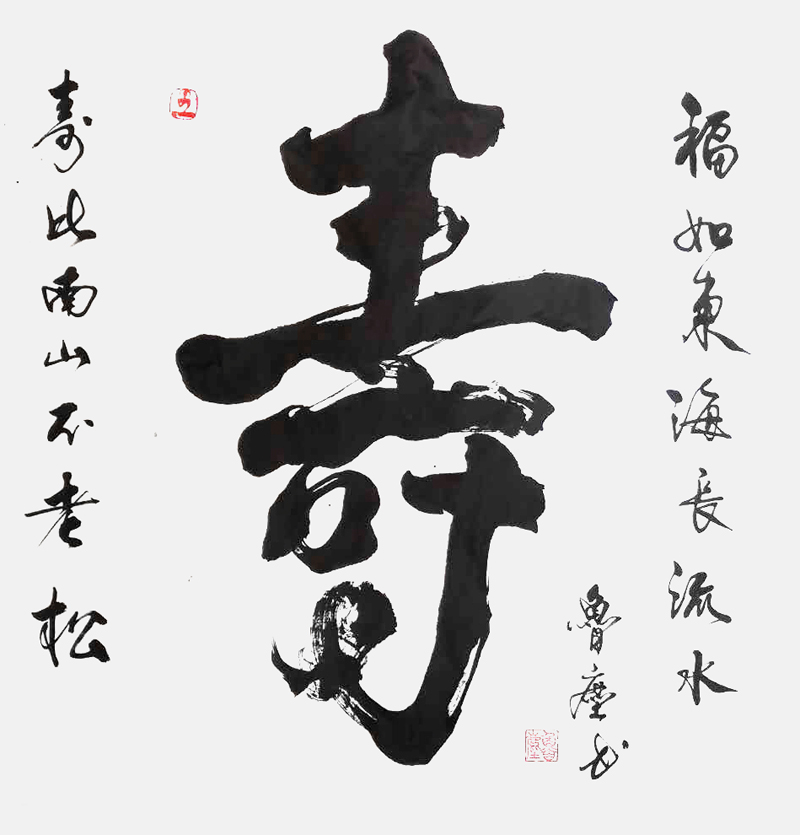 福如東海長流水
壽
寿比南山不老松
魯塵书